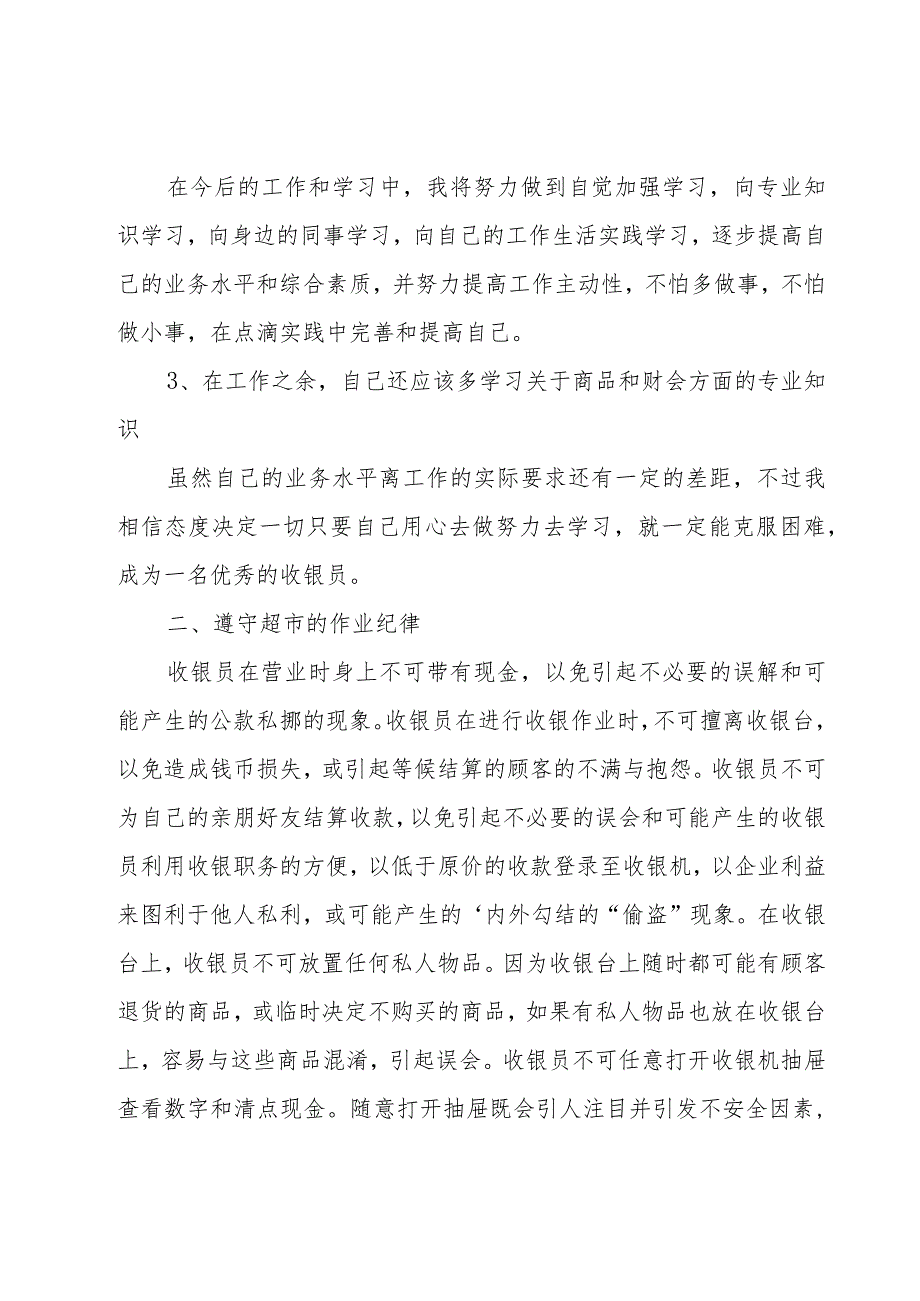 在今后的工作和学习中，我将努力做到自觉加强学习，向专业知
识学习，向身边的同事学习，向自己的工作生活实践学习，逐步提高自
己的业务水平和综合素质，并努力提高工作主动性，不怕多做事，不怕
做小事，在点滴实践中完善和提高自己。
3、在工作之余，自己还应该多学习关于商品和财会方面的专业知
识
虽然自己的业务水平离工作的实际要求还有一定的差距，不过我
相信态度决定一切只要自己用心去做努力去学习，就一定能克服困难，
成为一名优秀的收银员。
二、遵守超市的作业纪律
收银员在营业时身上不可带有现金，以免引起不必要的误解和可
能产生的公款私挪的现象。收银员在进行收银作业时，不可擅离收银台，
以免造成钱币损失，或引起等候结算的顾客的不满与抱怨。收银员不可
为自己的亲朋好友结算收款，以免引起不必要的误会和可能产生的收银
员利用收银职务的方便，以低于原价的收款登录至收银机，以企业利益
来图利于他人私利，或可能产生的‘内外勾结的“偷盗”现象。在收银
台上，收银员不可放置任何私人物品。因为收银台上随时都可能有顾客
退货的商品，或临时决定不购买的商品，如果有私人物品也放在收银台
上，容易与这些商品混淆，引起误会。收银员不可任意打开收银机抽屉
查看数字和清点现金。随意打开抽屉既会引人注目并引发不安全因素，